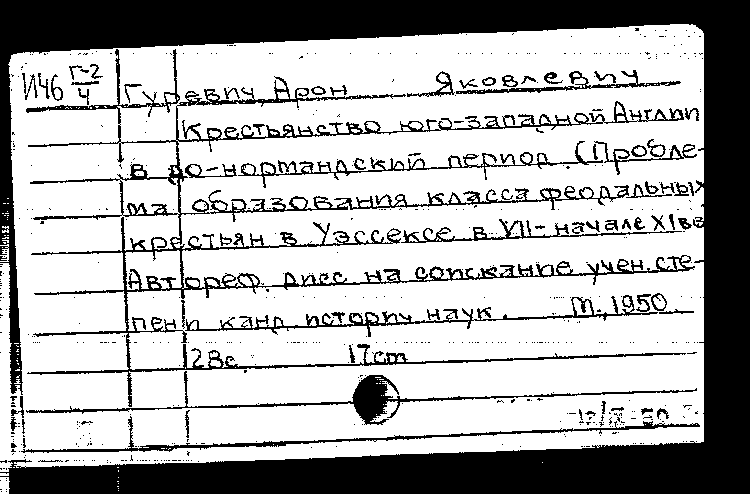 И46 Г-2/4 Гуревич, Арон Яковлевич
Крестьянство юго-западной Англии
в до-нормандский период. (Пробле-
ма образования класса феодальных
крестьян в Уэссексе в VII- начале XI вв
Автореф. дисс на соискание учен. сте-
пени канд. историч. наук. М., 1950.
28с. 17см